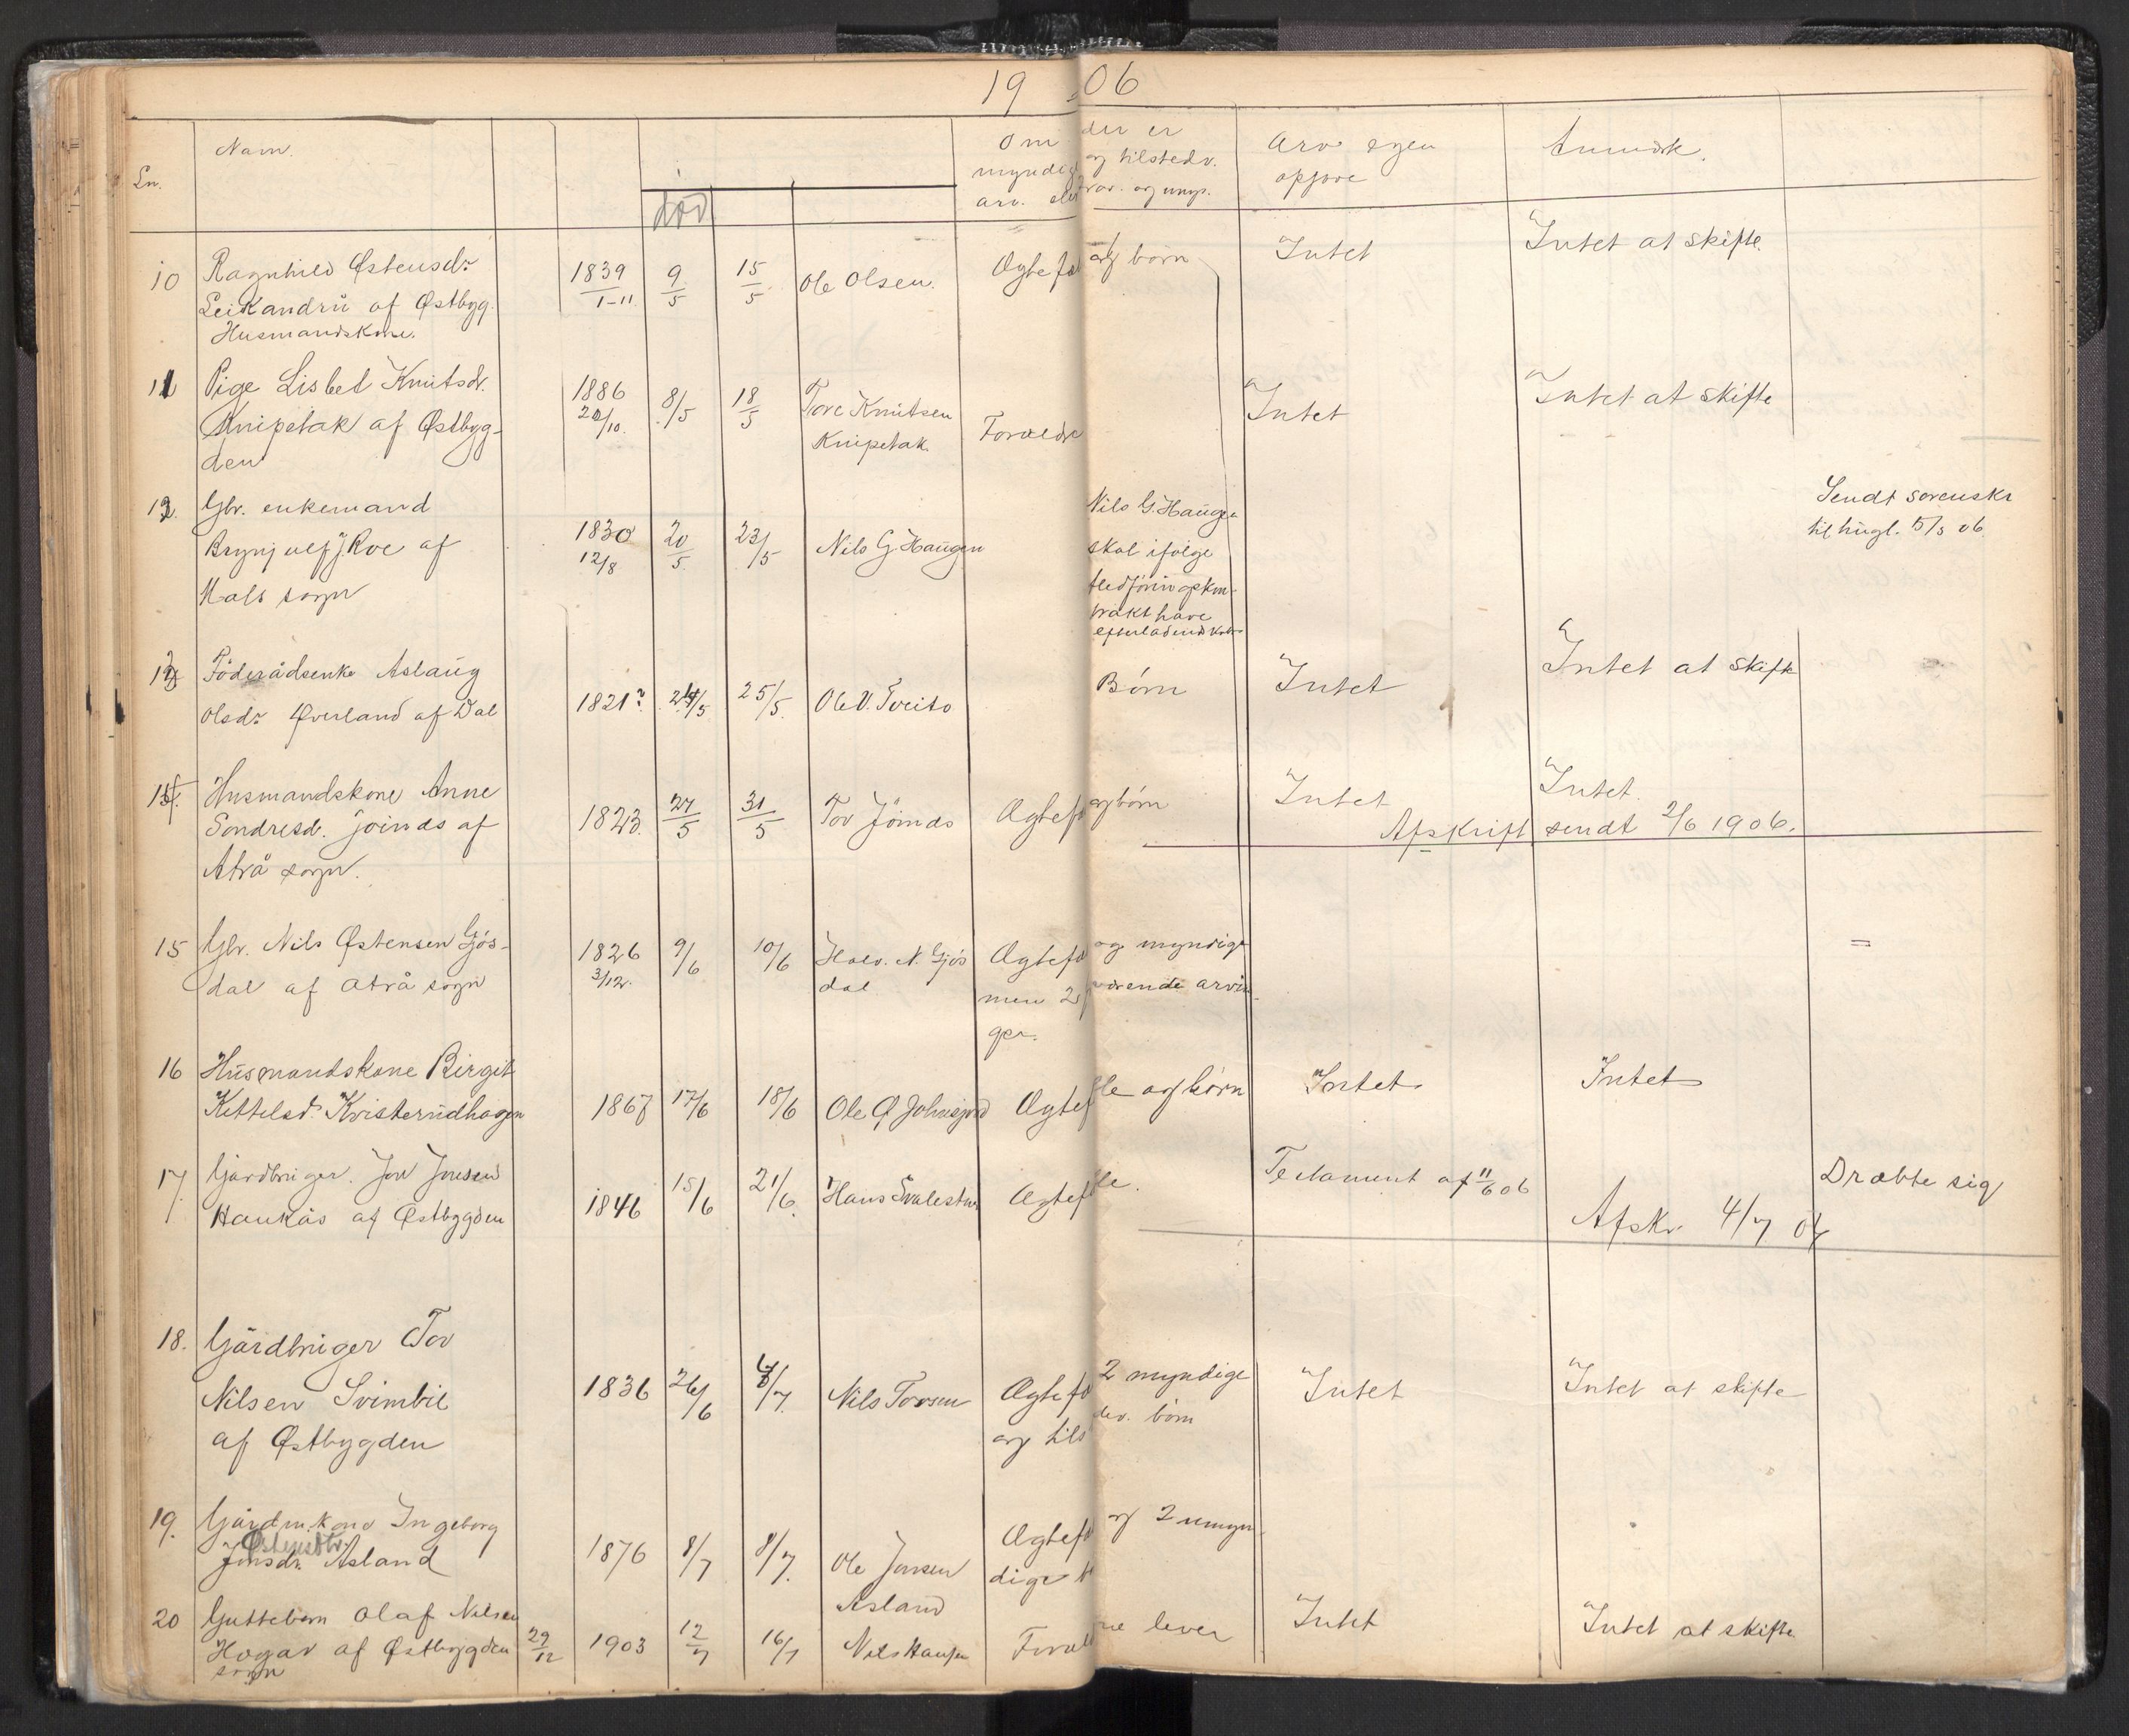 19 06
Ln. Navn. død Om der er
myndig og tilstedv.
arv. eller frav. og umyn.
Arv egen
opgave
Anmærk.
10 Ragnhild Østensdr 1839 9/5 15/5 Ole Olsen. Ægtef. og børn Intet Intet at skifte.
Leikandrü af Østbyg. 1-11
Husmandskone.
11 Pige Lisbet Knutsdr. 1886 8/5 18/5 Tore Knutsen Intet Intet at skifte
Knipetak af Østbyg- 20/10. Knipetak Forældre
den
12. Gbr. enkemand Nils G. Haugen Sendt sorenskr
Brynjulf J Roe af 1830 20/5 23/5 Nils G Haugen skal ifølge til tingl. 5/5 06
Mals sogn 12/8 fledføringskon-
trakt have
13 Föderådsenke Aslaug 1821? 24/5 25/5 Ole V. Tveito Børn Intet Intet at skifte
Olsdr Øverland af Dal
14. Husmandskone Anne 1823 27/5 31/5 Tov Jöinds Ægtef og børn Intet Intet.
Sondresd. Joinds af Afskrift sendt 2/6 1906.
Atrå sogn.
15 Gbr. Nils Østensen Gjös- 1826 9/6 10/6 Halv. N. Gjös Ægtef og myndige =
dal af Atrå sogn 3/12. dal men 2 fraværende arvin-
ger.
16 Husmandskone Birgit
Kettelsd. Kristerudhagen 1867 17/6 18/6 Ole Ø Johnsjord Ægtefle og børn Intet Intet
17. Gårdbruger. Jon Jonsen Testament af 11/6 06 Dræbte sig
Haukås af Østbygden 1846 15/6 21/6. Hans Svalestuen Ægtefle. Afskr. 4/7 06
18. Gårdbruger Tov
Nilsen Svimbil 1836 26/6 4/7. Nils Tovsen Ægtef 2 myndige Intet Intet at skifte
af Østbygden og tilstedev. børn
19. Gårdm.kone Ingeborg Ægtef og 2 umyn-
Østensdtr.
Jonsdr. Åsland 1876 8/7 8/7. Ole Jonsen dige
Åsland
20 Guttebarn Olaf Nilsen
Hogar af Østbygden 29/12 1903 12/7 16/7 Nils Hansen Forældre lever Intet Intet at skifte
sogn